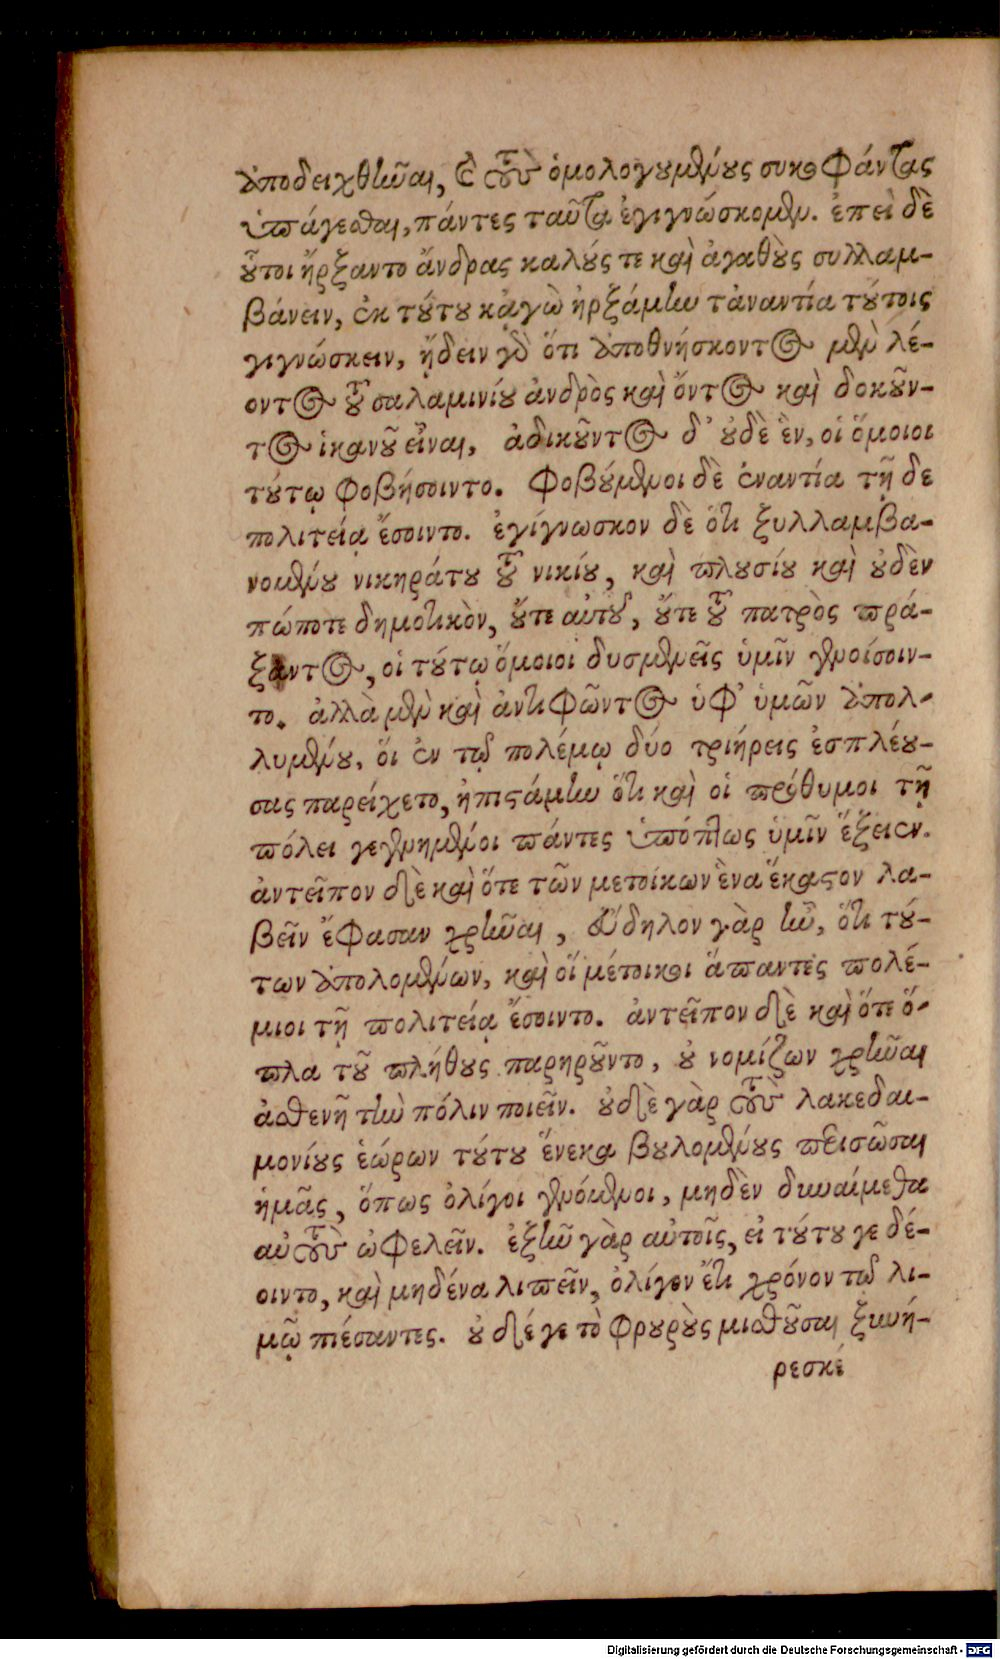 ἀποδειχθῆναι, καὶ τοὺς ὁμολογουμένους συκοφάντας
ὑπάγεσθαι, πάντες ταῦτα ἐγιγνώσκομεν. ἐπεὶ δὲ
οὗτοι ἤρξαντο ἄνδρας καλούς τε καὶ ἀγαθοὺς συλλαμ-
βάνειν, ἐκ τούτου κἀγὼ ἠρξάμην τἀναντία τούτοις
γιγνώσκειν, ᾔδειν γὰρ ὅτι ἀποθνήσκοντος μὲν λέ-
οντος τοῦ σαλαμινίου ἀνδρὸς καὶ ὄντος καὶ δοκοῦν-
τος ἱκανοῦ εἶναι, ἀδικοῦντος δ' οὐδὲ ἓν, οἱ ὅμοιοι
τούτῳ φοβήσοιντο. φοβούμενοι δὲ ἐναντία τῇ δε
πολιτείᾳ ἔσοιντο. ἐγίγνωσκον δὲ ὅτι ξυλλαμβα-
νομένου νικηράτου τοῦ νικίου, καὶ πλουσίου καὶ οὐδὲν
πώποτε δημοτικὸν, οὔτε αὐτοῦ, οὔτε τοῦ πατρὸς πρά-
ξαντος, οἱ τούτῳ ὅμοιοι δυσμενεῖς ὑμῖν γενοίσοιν-
το. ἀλλὰ μὲν καὶ ἀντιφῶντος ὑφ' ὑμῶν ἀπολ-
λυμένου, ὅι ἐν τῷ πολέμῳ δύο τριήρεις ἐσπλέου-
σας παρείχετο, ἠπιστάμην ὅτι καὶ οἱ πρόθυμοι τῇ
πόλει γεγενημένοι πάντες ὑπόπτως ὑμῖν ἕξειεν.
ἀντεῖπον δὲ καὶ ὅτε τῶν μετοίκων ἕνα ἕκαστον λα-
βεῖν ἔφασαν χρῆναι, εὔδηλον γὰρ ἦν, ὅτι τού-
των ἀπολομένων, καὶ οἵ μέτοικοι ἅπαντες πολέ-
μιοι τῇ πολιτείᾳ ἔσοιντο. ἀντεῖπον δὲ καὶ ὅτε ὅ-
πλα τοῦ πλήθους παρηροῦντο, οὐ νομίζων χρῆναι
ἀσθενῆ τὴν πόλιν ποιεῖν. οὐδὲ γὰρ τοὺς λακεδαι-
μονίους ἑώρων τούτου ἕνεκα βουλομένους περισῶσαι
ἡμᾶς, ὅπως ὀλίγοι γενόμενοι, μηδὲν δυναίμεθα
αὐτοὺς ὠφελεῖν. ἐξῆν γὰρ αὐτοῖς, εἰ τούτου γε δέ-
οιντο, καὶ μηδένα λιπεῖν, ὀλίγον ἔτι χρόνον τῷ λι-
μῷ πιέσαντες. οὐ δέ γε τὸ φρουροὺς μισθοῦσαι ξυνή-
ρεσκέ
Digitalisierung gefördert durch die Deutsche Forschungsgemeinschaft - DFG